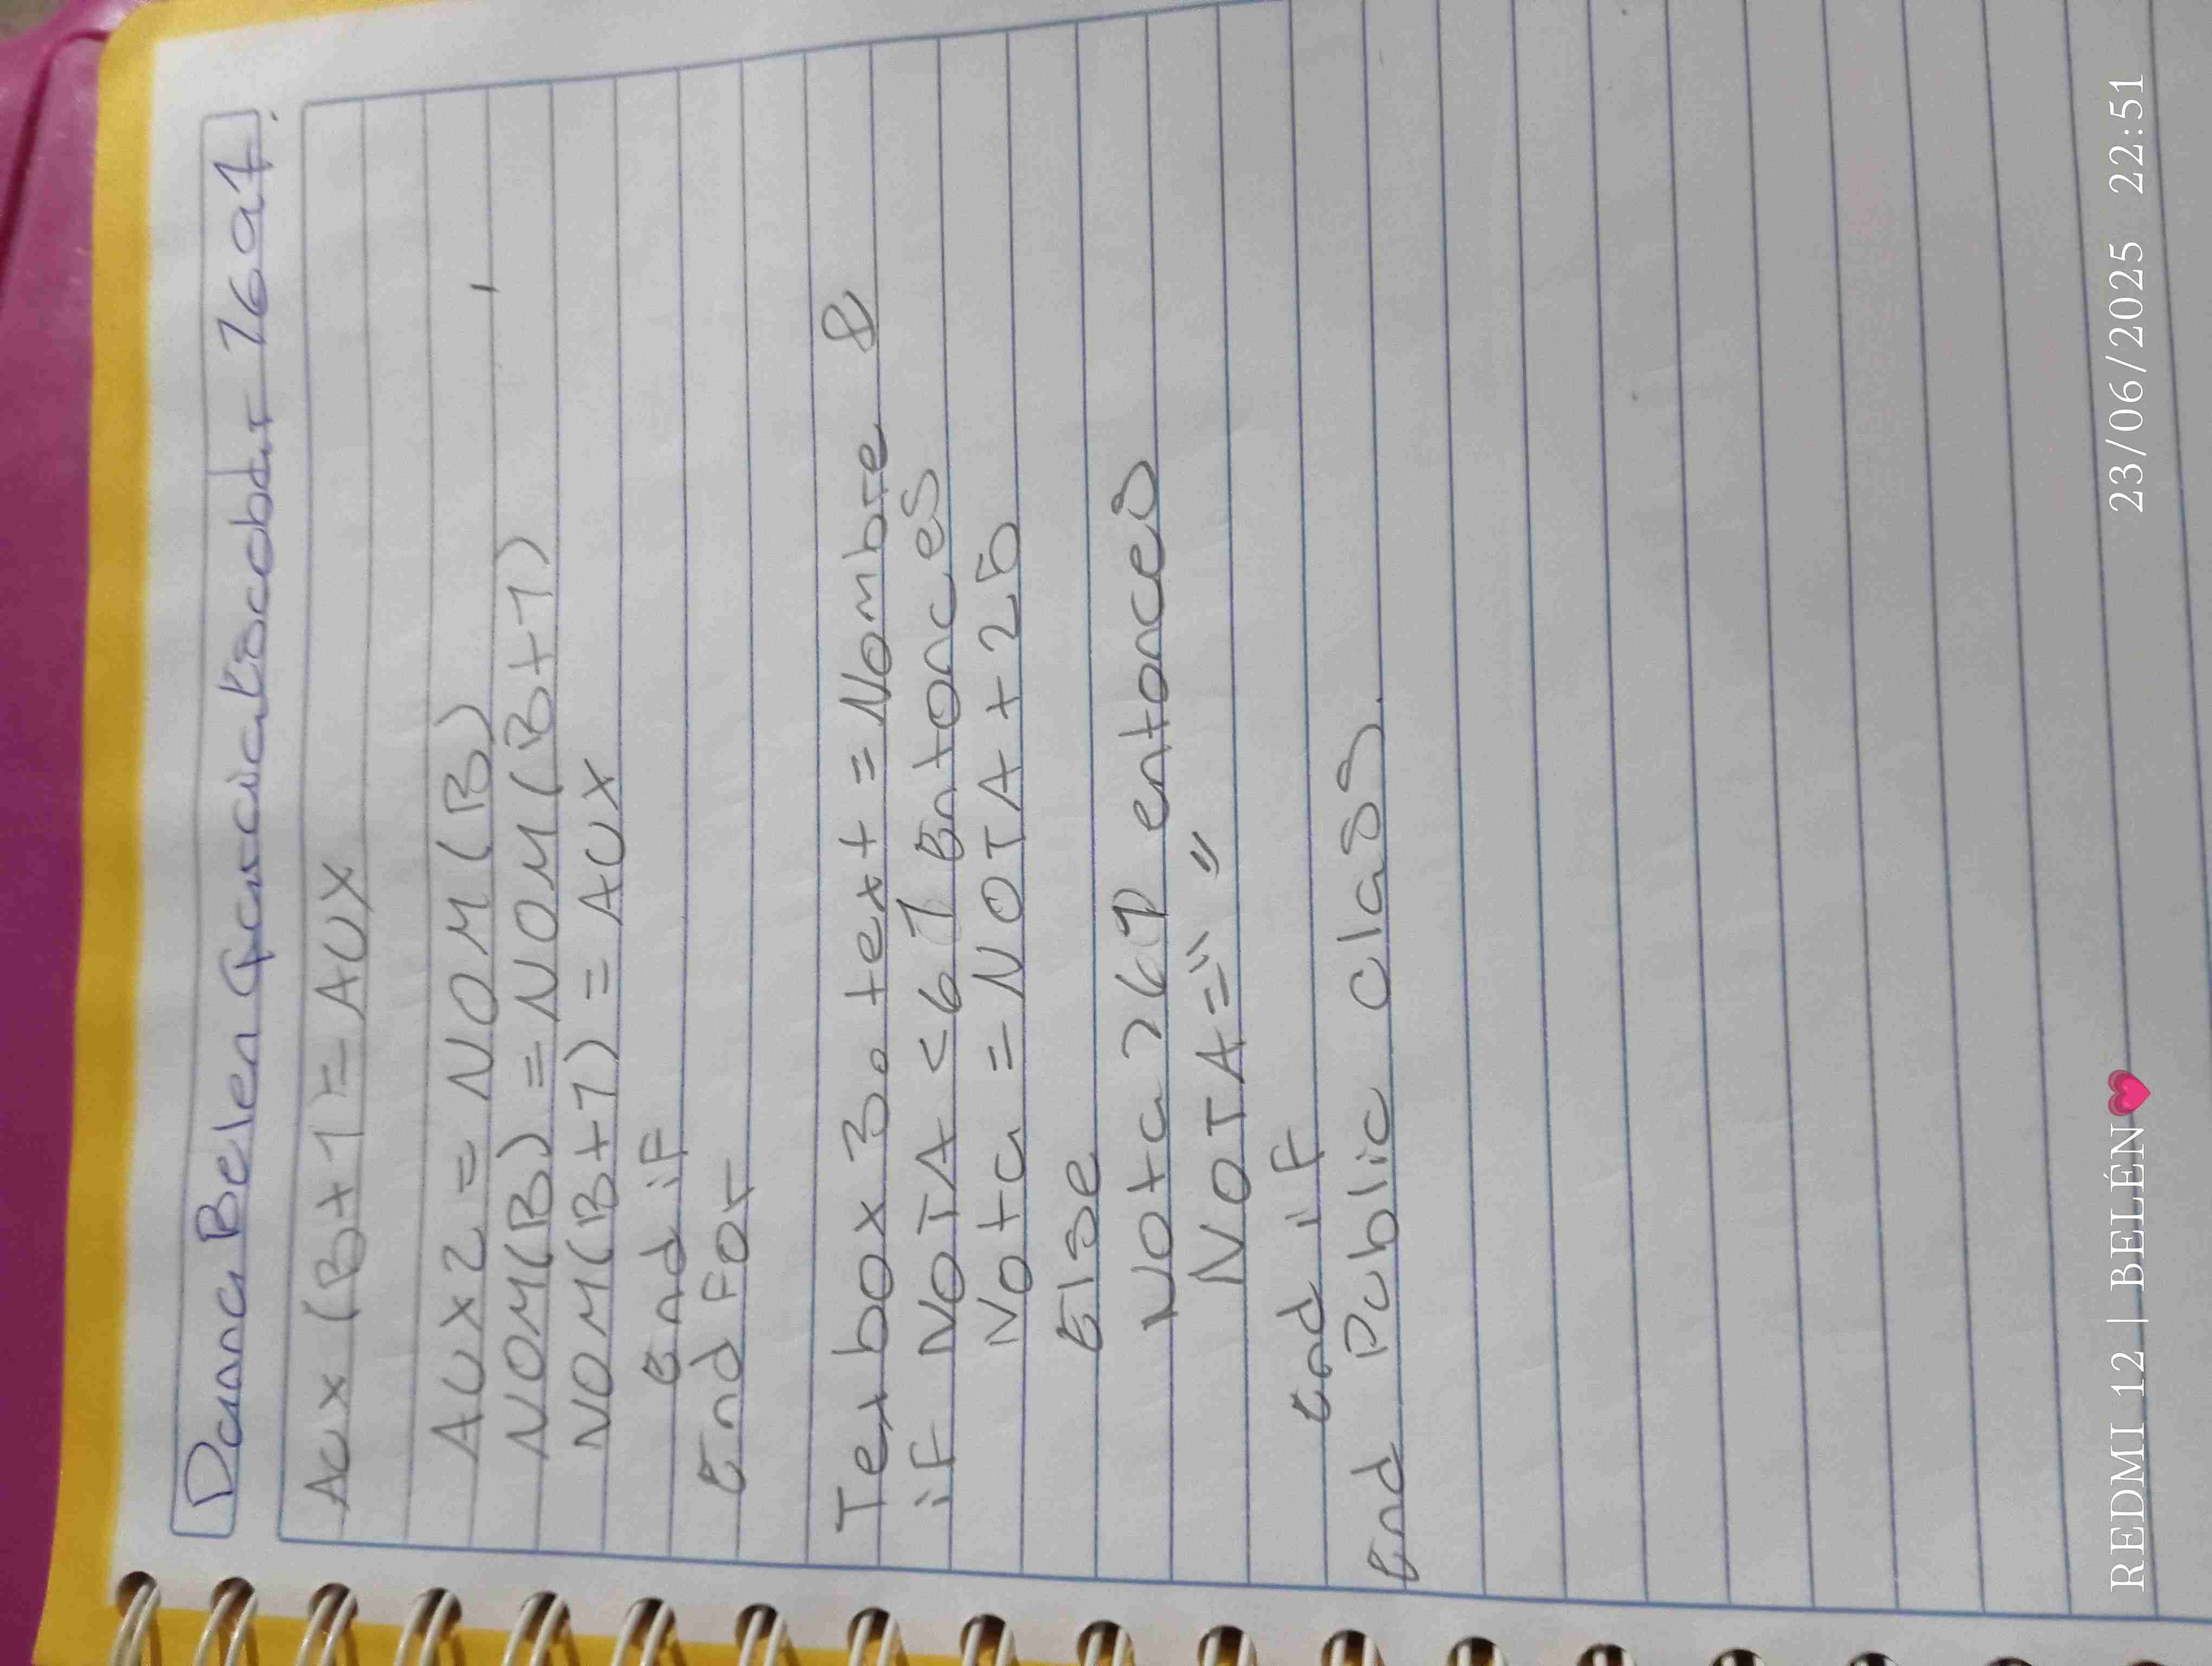 Danna Belen Garcia Escobar 16 at.
Aux (B+1) = AUX
AUX2 = NOM(B)
NOM(B) = NOM(B+1)
NOM(B+1) = AUX
End iF
End For
Tex box 3. text = Nombre &
iF NOTA <61 Entonces
Nota = NOTA + 25
Else
Nota >61 entonces
NOTA = " "
End iF
End Public Class.
REDMI 12 | BELÉN💗
23/06/2025 22:51